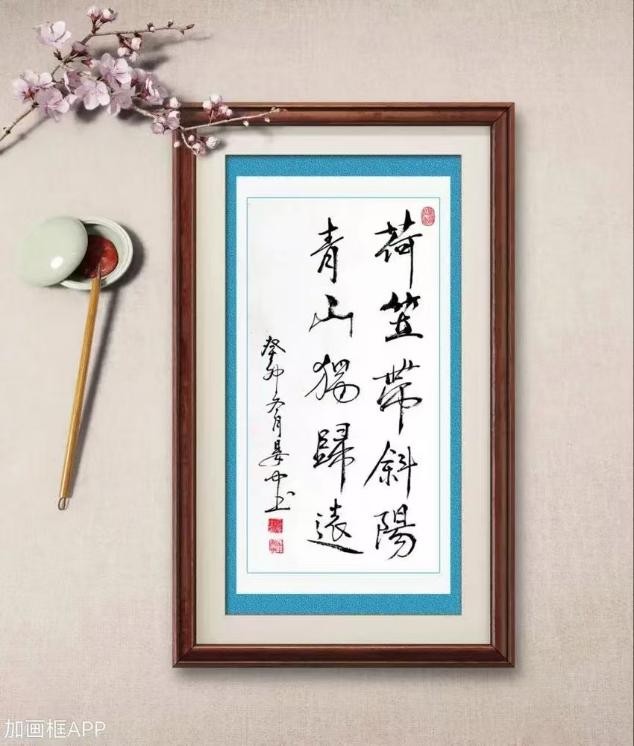 荷笠帶斜陽
青山獨歸遠
癸卯冬月
加画框APP